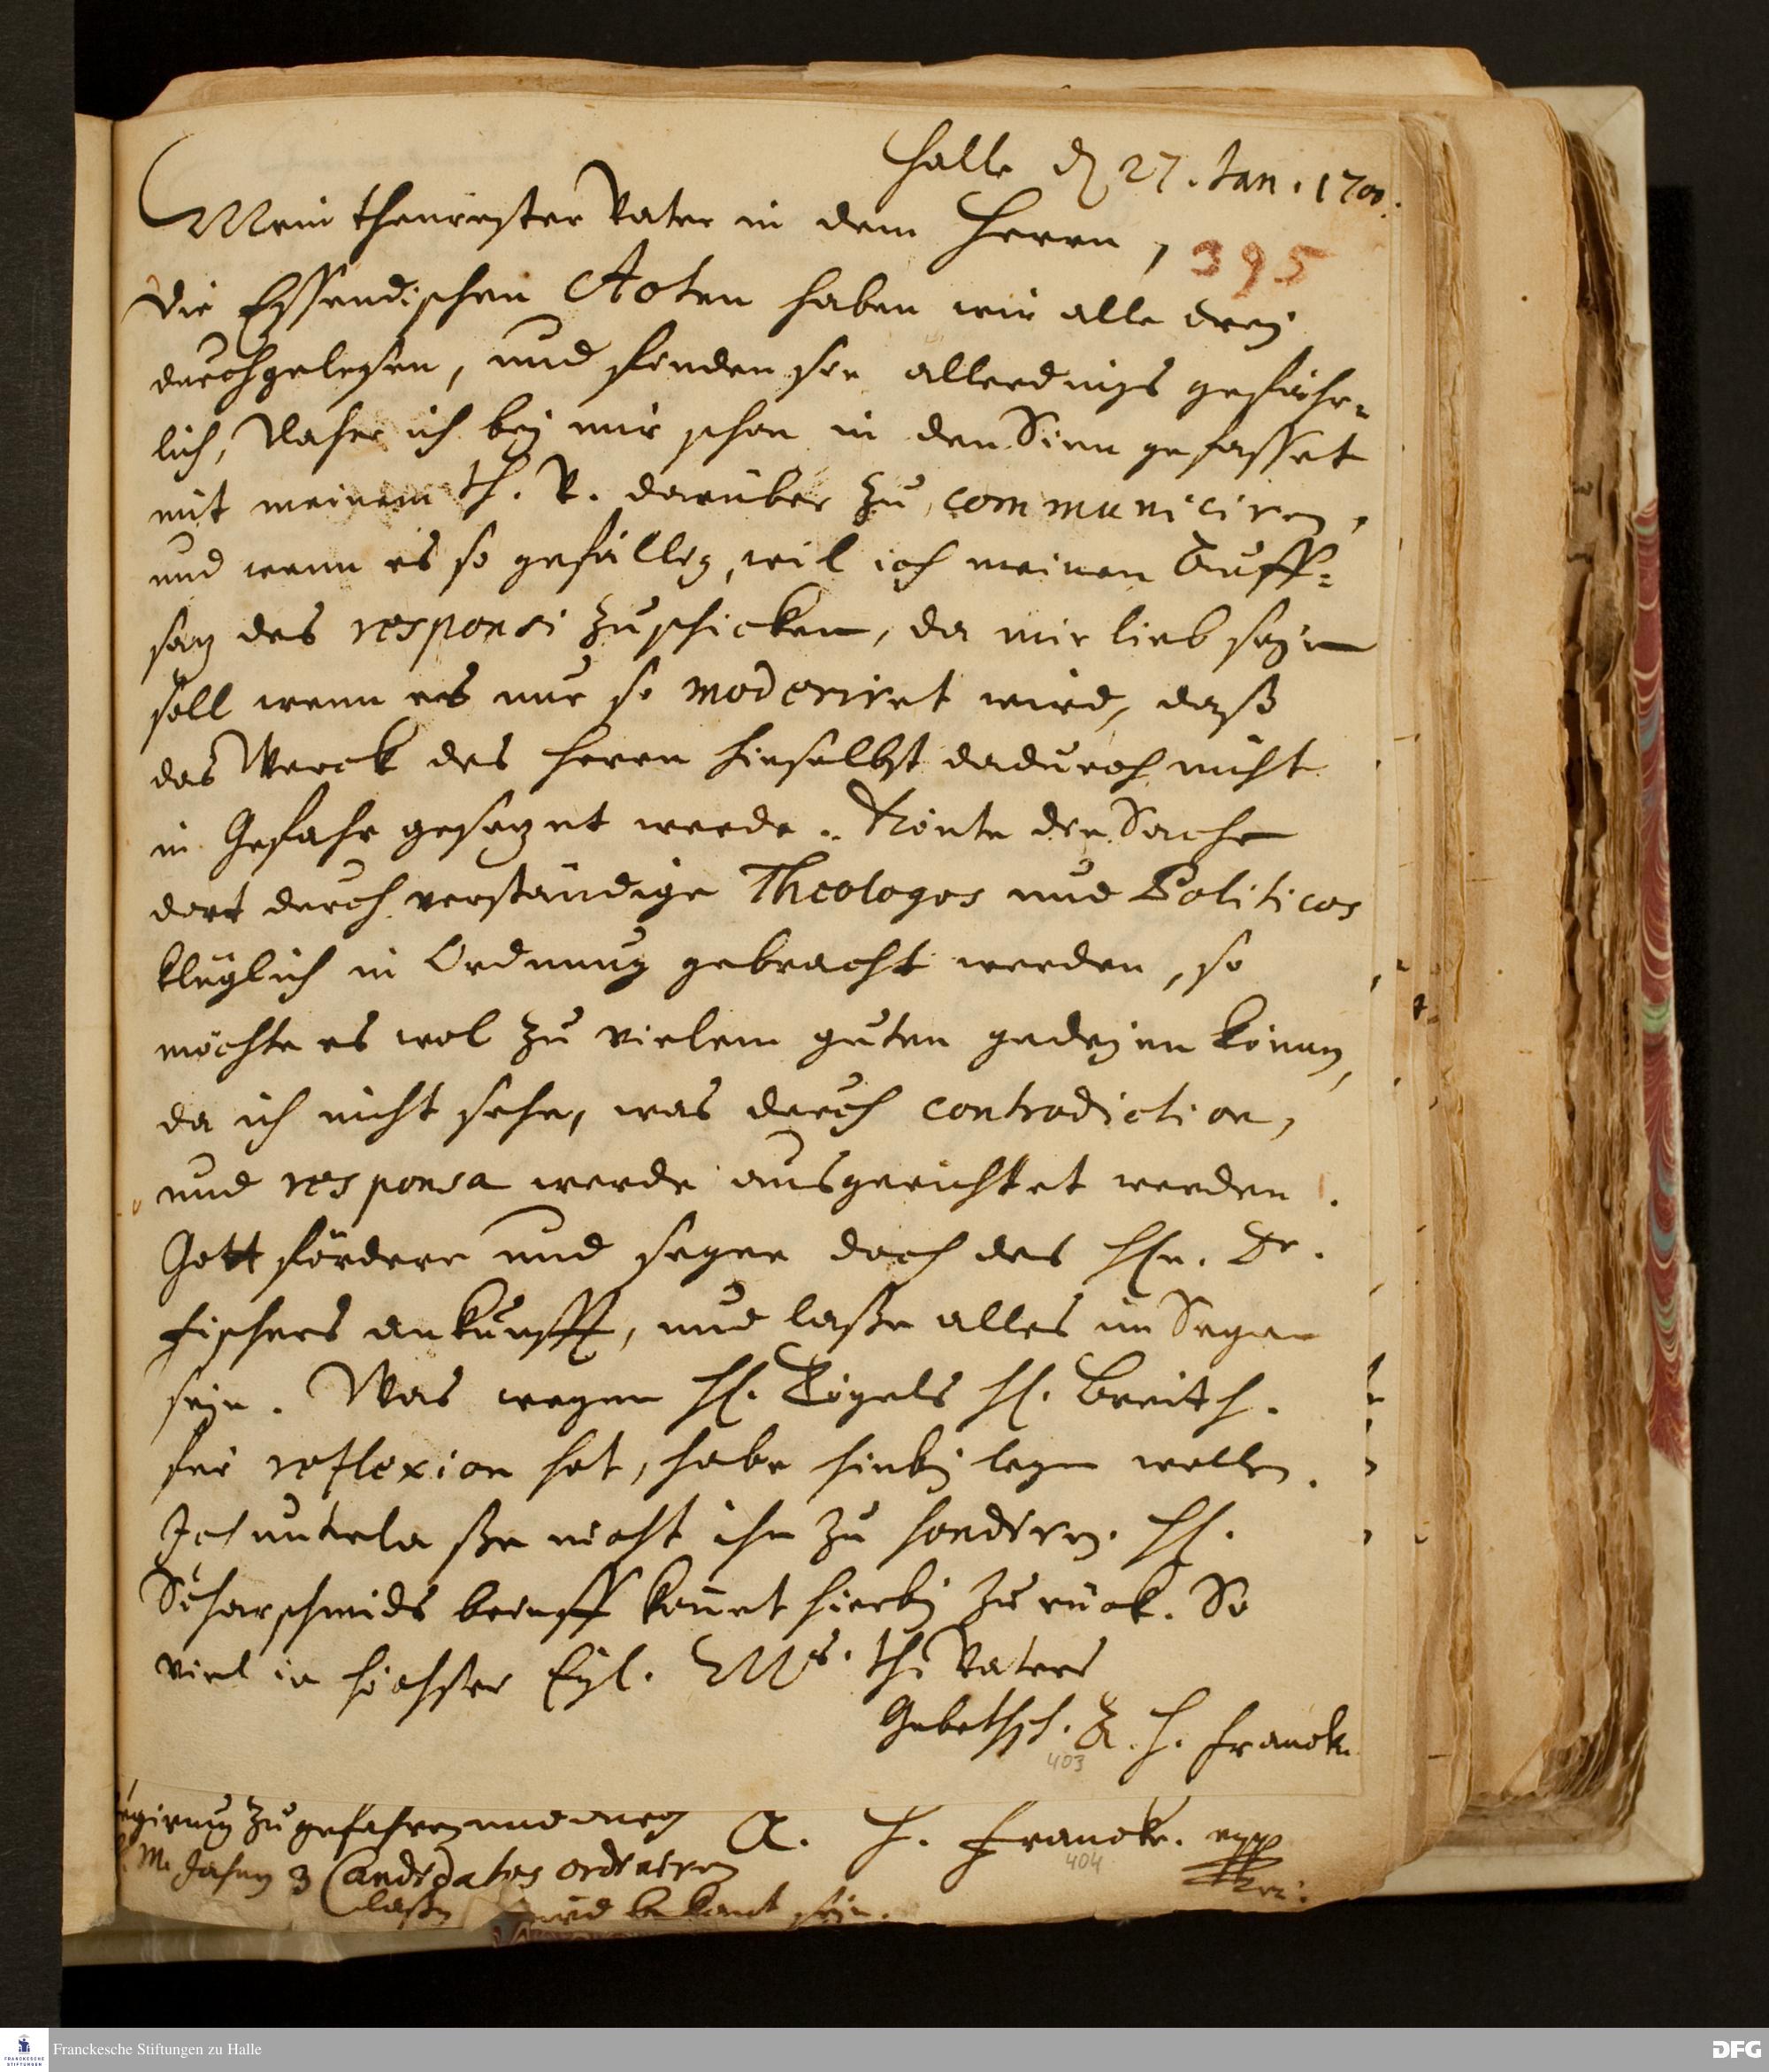 Halle d 27. Jan. 1700.
Mein theurester Vater in dem Herrn,
395
Die Essendischen Acten haben wir alle drey
durchgelesen, und finden sie allerdings gefähr-
lich, Daher ich bey mir schon in den Sinn gefasset
mit meinem th. V. darüber zu communiciren,
und wenn es so gefällig, wil ich meinen Auff-
saz des responsi zuschicken, da mir lieb seyn
soll wenn es nur so moderiret wird, daß
das Werck des Herrn hieselbst dadurch nicht
in Gefahr gesezet werde. Könte die Sache
dort durch verständige Theologos und Politicos
klüglich in Ordnung gebracht werden, so
möchte es wol zu vielem guten gedeyen können,
da ich nicht sehe, was durch contradiction,
und responsa werde ausgerichtet werden.
Gott fördere und segne doch des Hn. Dr.
Fischers ankunfft, und laße alles im Segen
seyn. Was wegen H. Tögels H. Breith.
für reflexion hat, habe hiebey legen wollen.
Ich unterlaße nicht ihn zu H.
Scharschmids brieff komt hierbey zurück. So
viel in höchster Eyl. Ms. th. Vaters
Gebethsch. A. H. Francke.
403
zu gefahren und
A. H. Francke. mpp
404
M. 3 Candidatos ordiniren
laßen wird bekant seyn.
Franckesche Stiftungen zu Halle
FRANCKESCHE
STIFTUNGEN
DFG